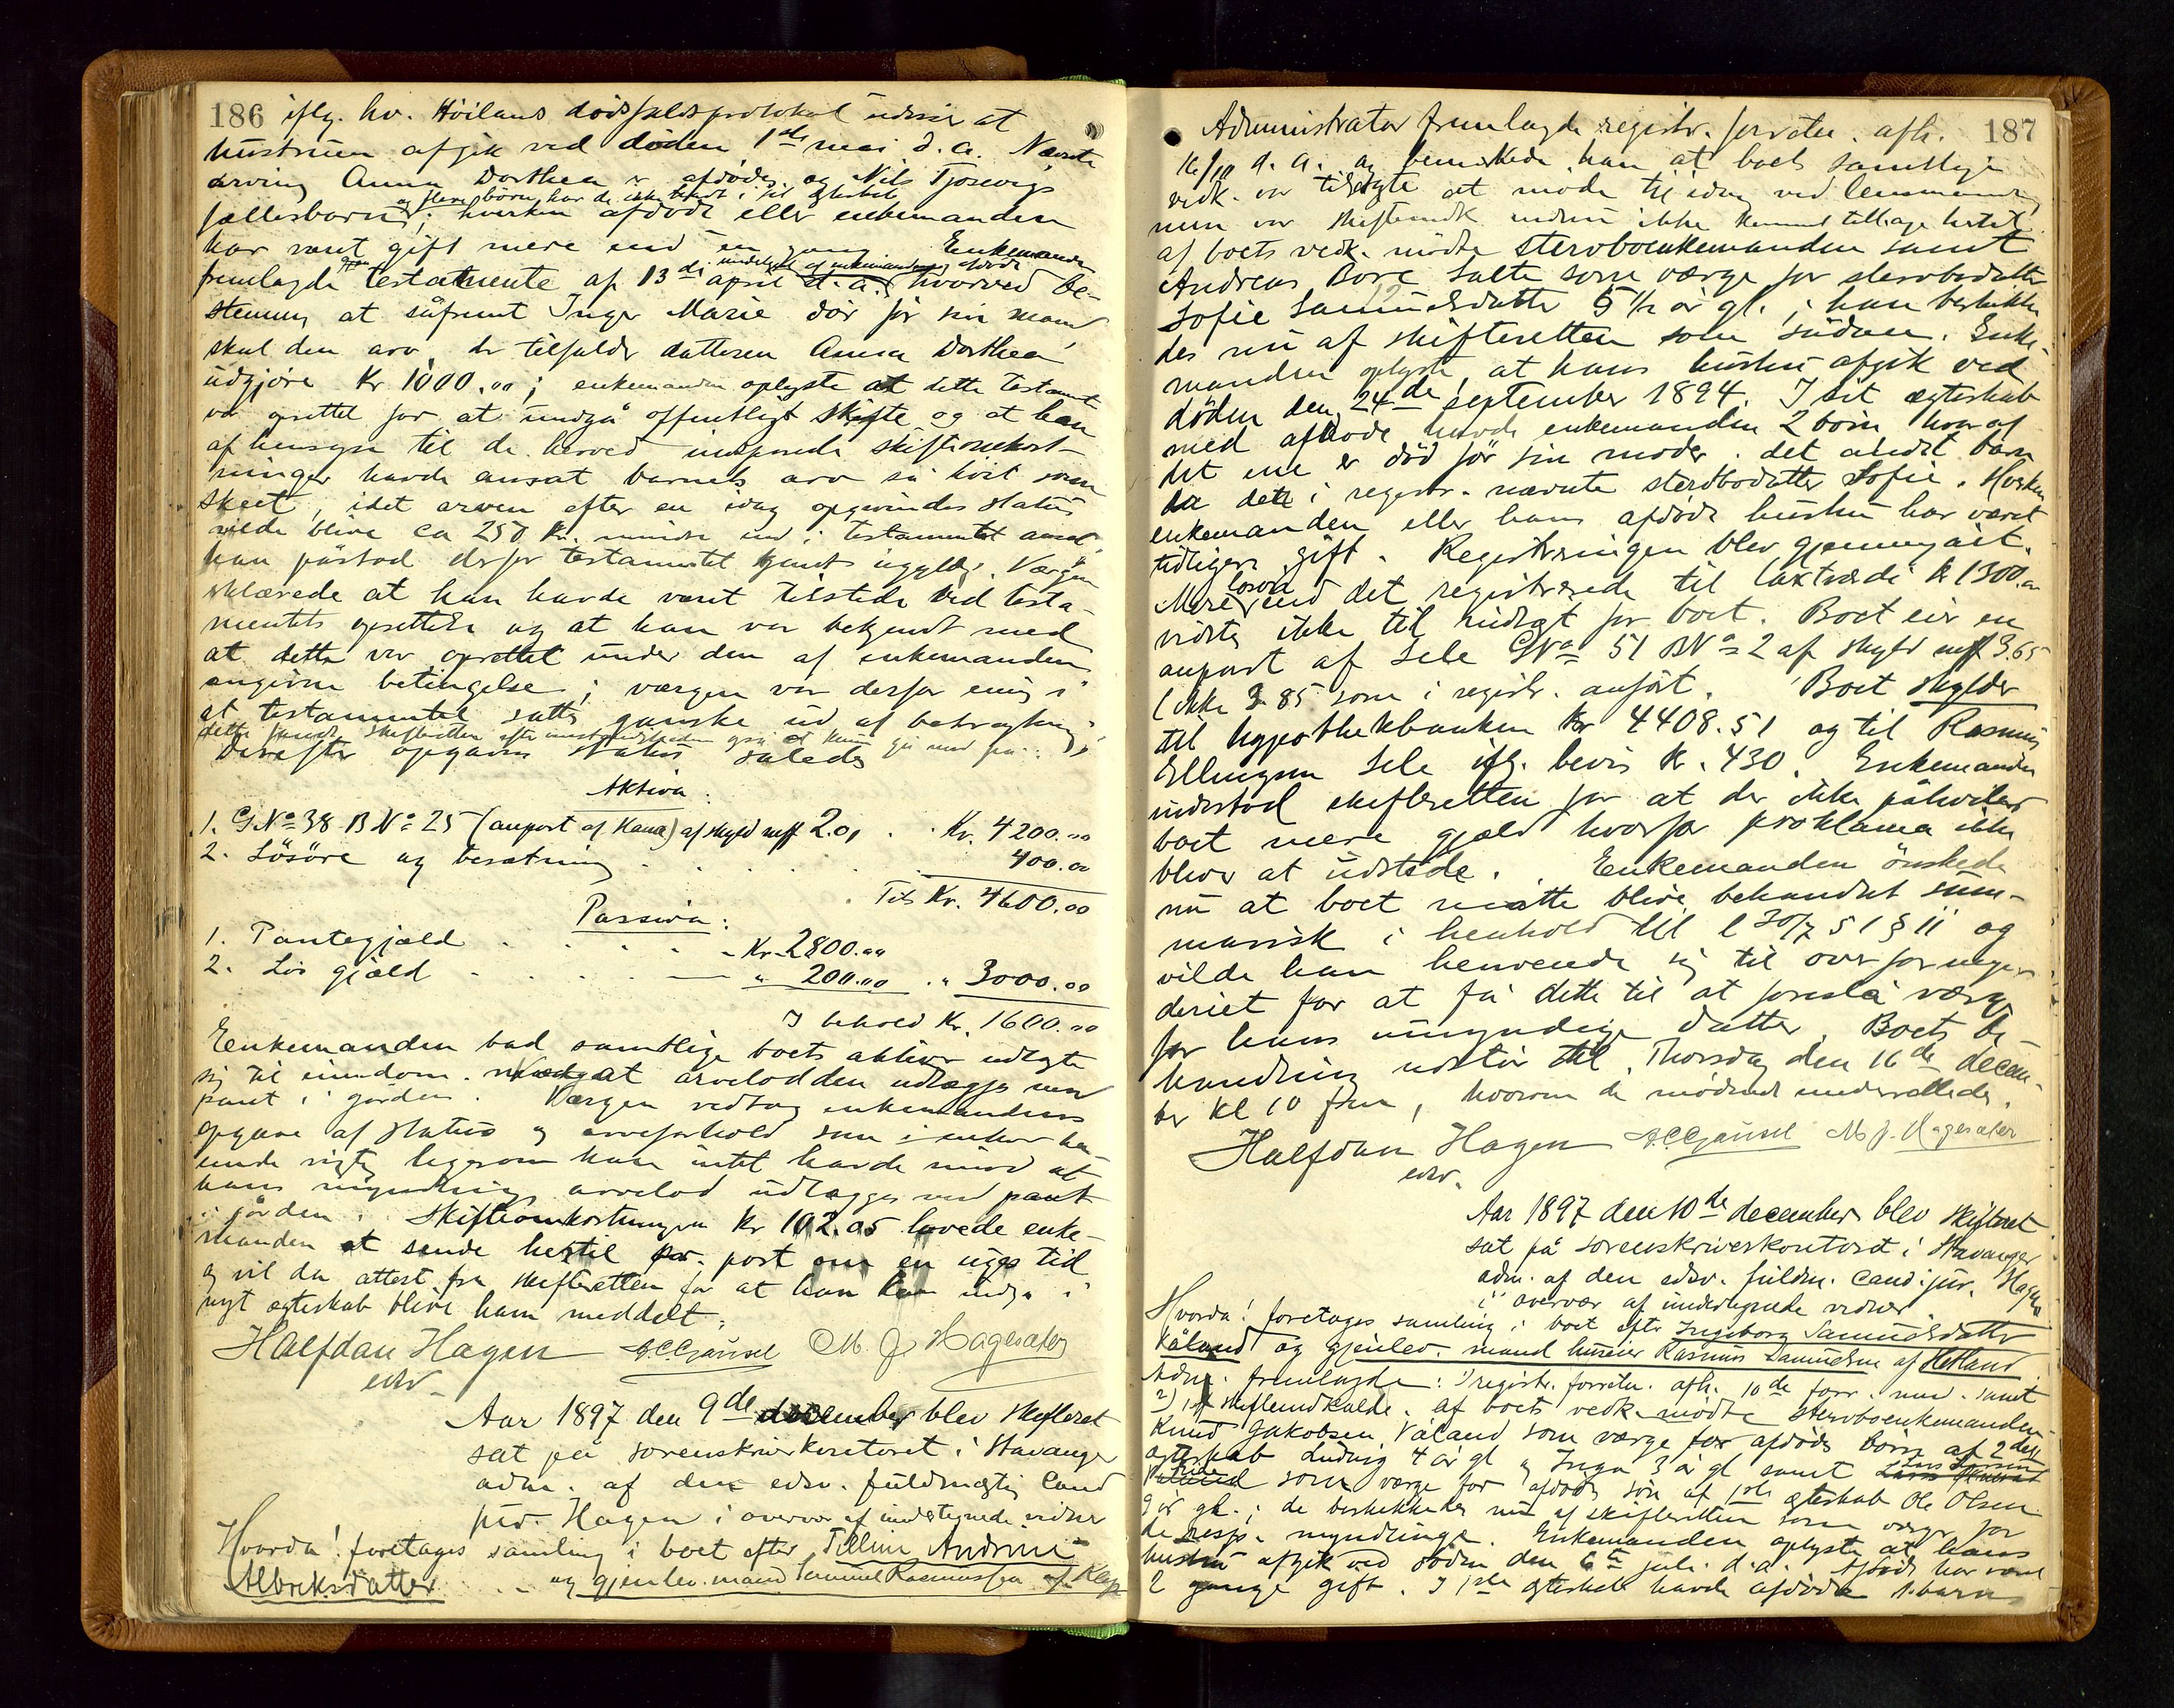 186 iflg. hr. Höilands dödsfaldsprotokol udviser at
hustruen afgik ved döden 1ste mai d.a. Nævnte
arving Anna Dorthea er afdödes og Nils Tjosevigs
og flere börn har de ikke havt i sit ægteskab
fællesbarn; hverken afdöde eller enkemanden
har været gift mere end en gang. Enkemanden
fremlagde testamente af 13de april d.a. hvorved be-
stemmes at såfremt Inger Marie dör för sin mand
skal den arv, der tilfalder datteren Anna Dorthea
udgjöre Kr 1000.00; enkemanden oplyste at dette testamt
var oprettet for at undgå offentligt skifte og at han
af hensyn til de herved indsparede skifteomkost-
ninger havde ansat barnets arv så höit som
skeet, idet arven efter en idag opgivendes status
vilde blive ca 250 Kr. mindre end i testamentet ansat;
han påstod derfor testamentet kjendt ugyldig. Værgen
erklærede at han havde været tilstede ved testa-
mentets oprettelse og at han var bekjendt med
at dette var oprettet under den af enkemanden
angivne betingelse; værgen var derfor enig i
at testamentet sættes ganske ud af betragtning;
dette fandt skifteretten efter omstændigheden også at kunne gå med på.
Derefter opgaves status således
Aktiva:
1. GNo 38 BNo 25 (anpart af Kana) af skyld mrk 2.01 . . Kr. 4200.00
2. Lösöre og besætning . . . . . 400.00
Tils Kr. 4600.00
Passiva:
1. Pantegjæld . . . . - Kr. 2800.00
2. Lös gjæld . . . . . — " 200.00 . " 3000.00
I behold Kr. 1600.00
Enkemanden bad samtlige boets aktiver udlagte
sig til eiendom. at arvelodden udlægges med
pant i gården. Værgen vedtog enkemandens
opgave af status og arveforhold som i enhver hen-
seende rigtig ligesom han intet havde imod at
hans myndlings arvelod udlægges med pant
i gården. Skifteomkostningen Kr 102.05 lovede enke-
manden at sende hertil pr. post om en uges tid
og vil da attest fra skifteretten for at han kan indgå i
nyt ægteskab blive ham meddelt.
Halfdan Hagen A.C. Gjausel M. J. Hagesæter
edsv.
Aar 1897 den 9de december blev skifteret
sat på sorenskriverkontoret i Stavanger
adm. af den edsv. fuldmægtig Cand
jur. Hagen i overvær af undertegnede vidner
Hvorda! foretages samling i boet efter Tilline Andrine
Albreksdatter og gjenlev. mand Samuel Rasmussen af Klep
187
Administrator fremlagde registr. forretn. afh.
16/10 d.a. og bemærkede han at boets samtlige
vedk. var tilsagte at möde til idag ved lensmanden,
men var skifteindk endnu ikke kommet tilbage hertil.
af boets vedk. mödte stervboenkemanden samt
Andreas Bore Salte som værge for stervbodatter
Sofie Samuelsdatter 5 1/2 år gl.; han beskikke-
des nu af skifteretten som sådan. Enke-
manden oplyste, at hans hustru afgik ved
döden den 24de september 1894. I sit ægteskab
med afdöde havde enkemanden 2 börn hvoraf
det ene er död för sin moder. det andet barn
er det i registr. nævnte stervbodatter Sofie. Hverken
enkemanden eller hans afdöde hustru har været
tidligere gift. Registreringen blev gjennemgået.
Mere lösöre end det registrerede til taxtværdi Kr 1300.00
vidstes ikke til indtægt for boet. Boet eier en
anpart af Sele GNo 51 BNo 2 af skyld mrk 3.65
(ikke 3.85 som i registr. anfört. Boet skylder
til hypothekbanken Kr 4408.51 og til Rasmus
Ellingsen Sele iflg. bevis Kr. 430. Enkemanden
indestod skifteretten for at der ikke påhviler
boet mere gjæld hvorfor proklama ikke
blev at udstede. Enkemanden önskede
nu at boet måtte blive behandlet sum-
marisk i henhold til l 30/7 51 § 11 og
vilde han henvende sig til overformyn-
deriet for at få dette til at foreslå værge
for hans umyndige datter. Boets be-
handling udstår til Thorsdag den 16de decem-
ber Kl 10 fm, hvorom de mödende underrettedes.
Halfdan Hagen A.C. Gjausel M. J. Hagesæter
edsv.
Aar 1897 den 10de december blev skifteret
sat på sorenskriverkontoret i Stavanger
adm. af den edsv. fuldm. cand. jur. Hagen
i overvær af undertegnede vidner
Hvorda! foretages samling i boet efter Ingeborg Samuelsdatter
Våland og gjenlev. mand huseier Rasmus Samuelsen af Hetland.
Adm. fremlagde: 1) registr. forretn. afh. 10de forr. mnd. samt
2) skifteindkalde. af boets vedk. mödte stervboenkemanden
Knud Jakobsen Våland som værge for afdödes börn af 2det
ægteskab Ludvig 4 år gl og Inga 3 år gl samt Lars Larsen
som værge for afdödes sön af 1ste ægteskab Ole Olsen
9 år gl.; de beskikkedes nu af skifteretten som værger for
de resp. myndlinge. Enkemanden oplyste at hans
hustru afgik ved döden den 6te juli d.a. Afdöde har været
2 gange gift. I 1ste ægteskab havde afdöde 1 barn